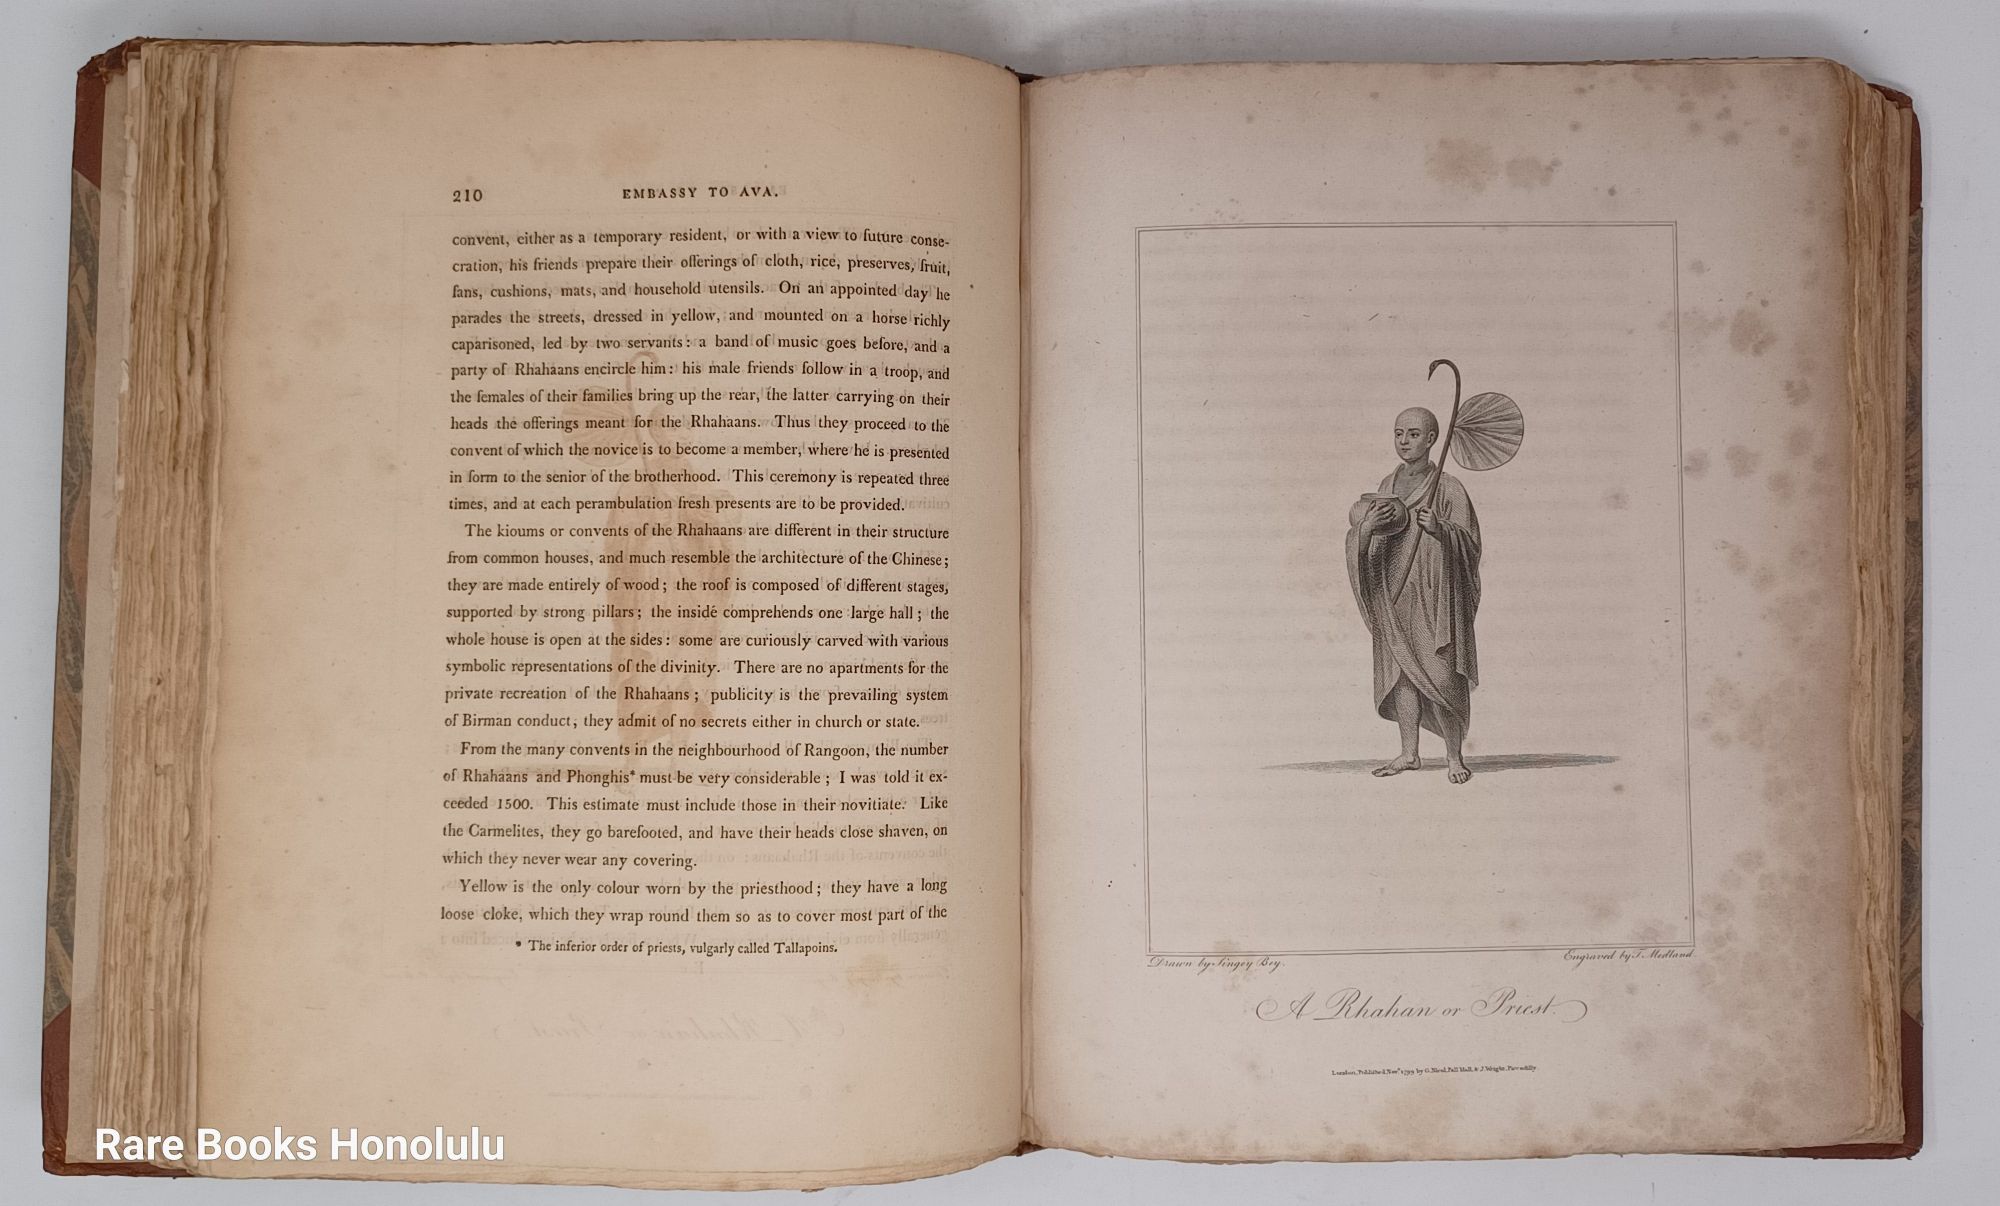 210 EMBASSY TO AVA.
convent, either as a temporary resident, or with a view to future conse-
cration, his friends prepare their offerings of cloth, rice, preserves, fruit,
fans, cushions, mats, and household utensils. On an appointed day he
parades the streets, dressed in yellow, and mounted on a horse richly
caparisoned, led by two servants: a band of music goes before, and a
party of Rhahaans encircle him: his male friends follow in a troop, and
the females of their families bring up the rear, the latter carrying on their
heads the offerings meant for the Rhahaans. Thus they proceed to the
convent of which the novice is to become a member, where he is presented
in form to the senior of the brotherhood. This ceremony is repeated three
times, and at each perambulation fresh presents are to be provided.
The kioums or convents of the Rhahaans are different in their structure
from common houses, and much resemble the architecture of the Chinese;
they are made entirely of wood; the roof is composed of different stages,
supported by strong pillars; the inside comprehends one large hall; the
whole house is open at the sides: some are curiously carved with various
symbolic representations of the divinity. There are no apartments for the
private recreation of the Rhahaans; publicity is the prevailing system
of Birman conduct; they admit of no secrets either in church or state.
From the many convents in the neighbourhood of Rangoon, the number
of Rhahaans and Phonghis* must be very considerable; I was told it ex-
ceeded 1500. This estimate must include those in their novitiate. Like
the Carmelites, they go barefooted, and have their heads close shaven, on
which they never wear any covering.
Yellow is the only colour worn by the priesthood; they have a long
loose cloke, which they wrap round them so as to cover most part of the
* The inferior order of priests, vulgarly called Tallapoins.
Drawn by Singey Bey.
Engraved by T. Medland.
A Rhahan or Priest.
London, Published Novr. 1799 by G. Nicol, Pall Mall, & J. Wright, Piccadilly.
Rare Books Honolulu